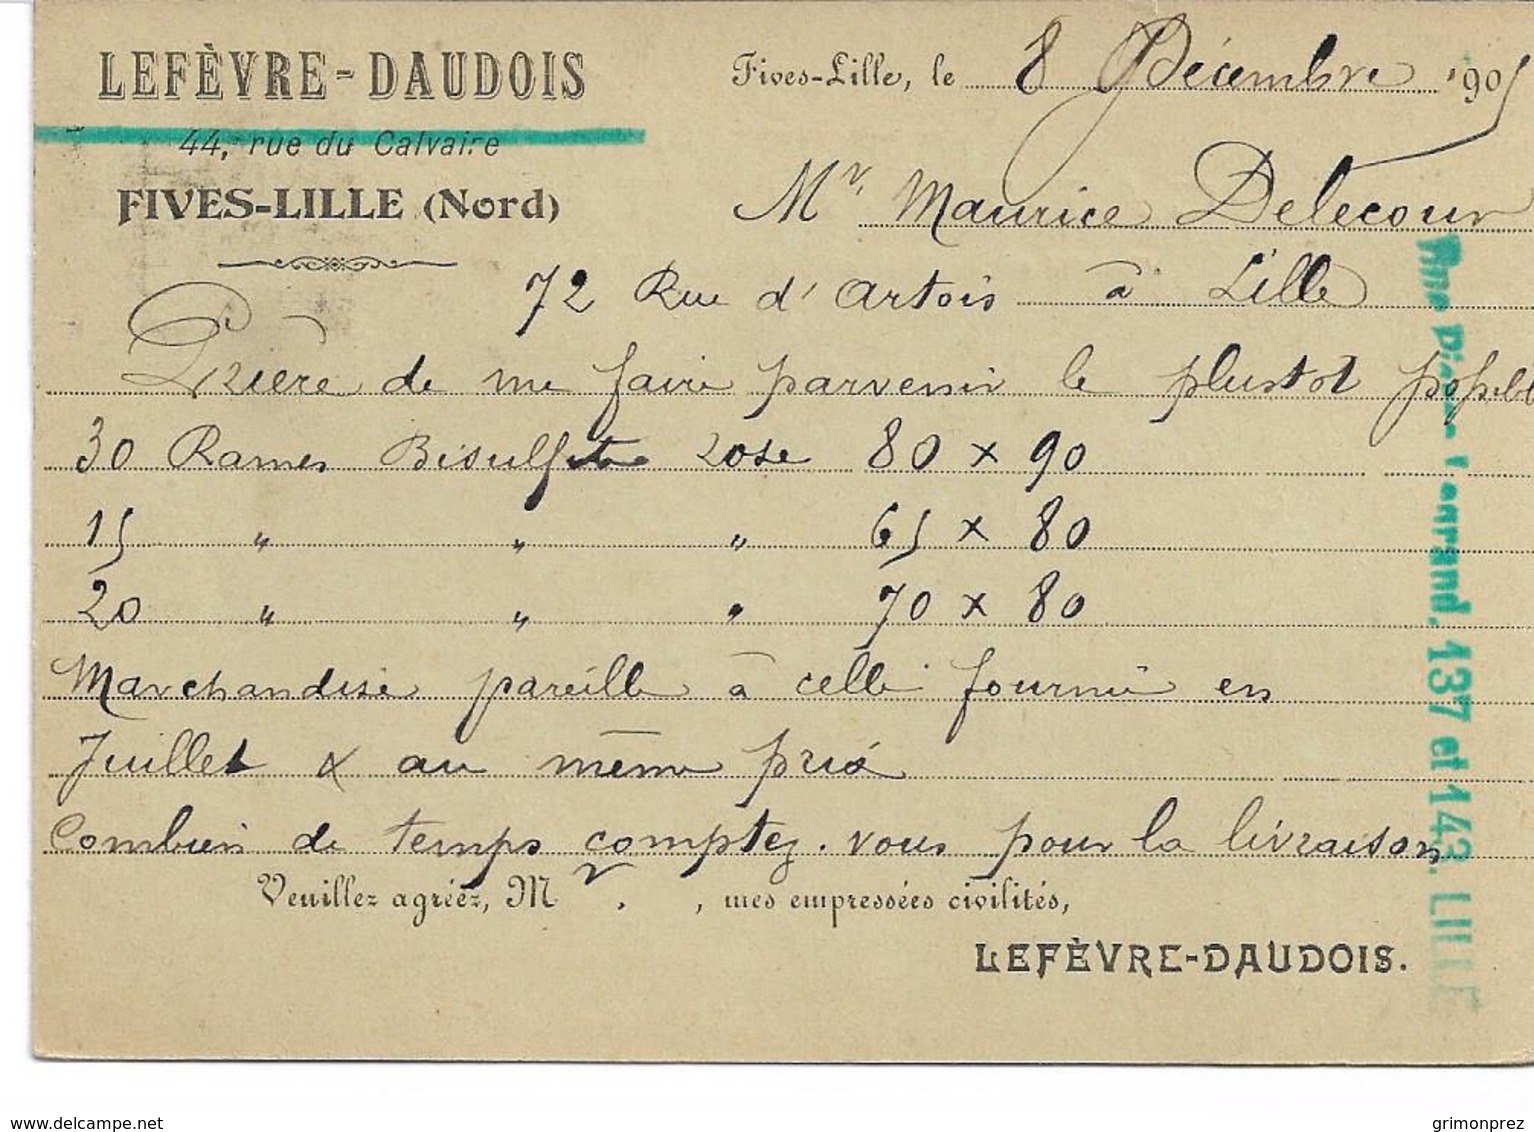 LEFÈVRE-DAUDOIS
44, rue du Calvaire
FIVES-LILLE (Nord)
Fives-Lille, le 8 Décembre 1905
Mr. Maurice Delecour
72 Rue d'Artois à Lille
Prière de me faire parvenir le plustot possibl
30 Rames Bisulfite rose 80 x 90
15 " " " 65 x 80
20 " " " 70 x 80
Marchandise pareille à celle fournie en
Juillet & au même prix
Combien de temps comptez-vous pour la livraison
Veuillez agréez, Mr. , mes empressées civilités,
LEFÈVRE-DAUDOIS.
Rue Pierre Legrand, 137 et 143, LILLE
www.delcampe.net
grimonprez